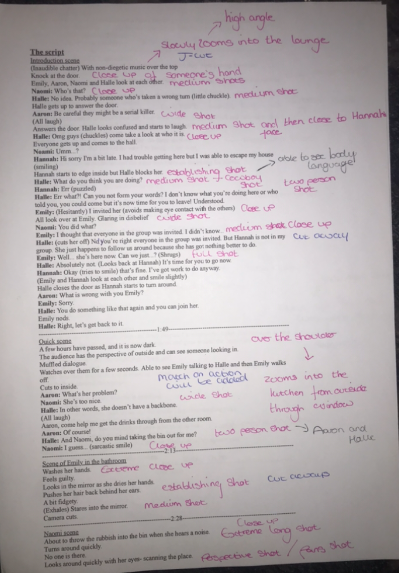 high angle
Slowly zooms into the lounge
J-cut
The script
Introduction scene
(Inaudible chatter) With non-diegetic music over the top
Knock at the door. Close up of someone's hand
Emily, Aaron, Naomi and Halle look at each other. medium shots
Naomi: Who's that? Close up
Halle: No idea. Probably someone who's taken a wrong turn (little chuckle) medium shot
Halle gets up to answer the door.
Aaron: Be careful they might be a serial killer. wide shot
(All laugh)
Answers the door. Halle looks confused and starts to laugh medium shot and then close to Hannahs face
Halle: Omg guys (chuckles) come take a look at who it is close up
Everyone gets up and comes to the hall.
Naomi: Umm..?
Hannah: Hi sorry I'm a bit late. I had trouble getting here but I was able to escape my house
(smiling)
able to see body language!
Hannah starts to edge inside but Halle blocks her establishing shot
Halle: What do you think you are doing? medium shot + cowboy shot
two person shot
Hannah: Err (puzzled)
Halle: Err what?! Can you not form your words? I don't know what you're doing here or who
told you, you could come but it's now time for you to leave! Understood.
Emily: (Hesitantly) I invited her (avoids making eye contact with the others) Close up
All look over at Emily. Glaring in disbelief wide shot
Naomi: You did what?
Emily: I thought that everyone in the group was invited. I didn't know.. medium shot Close up
Halle: (cuts her off) No you're right everyone in the group was invited. But Hannah is not in my cut away
group. She just happens to follow us around because she has got nothing better to do
Emily: Well... she's here now. Can we just..? (Shrugs) full shot
Halle: Absolutely not. (Looks back at Hannah) It's time for you to go now
Hannah: Okay (tries to smile) that's fine. I've got work to do anyway.
(Emily and Hannah look at each other and smile slightly)
Halle closes the door as Hannah starts to turn around.
Aaron: What is wrong with you Emily?
Emily: Sorry.
Halle: You do something like that again and you can join her.
Emily nods.
Halle: Right, let's get back to it.
1:49
Quick scene
over the shoulder
A few hours have passed, and it is now dark
The audience has the perspective of outside and can see someone looking in.
Muffled dialogue
Watches over them for a few seconds. Able to see Emily talking to Halle and then Emily walks
off.
match on action will be added
zooms into the kitchen from outside through window
Cuts to inside.
Aaron: What's her problem?
Naomi: She's too nice. wide shot
Halle: In other words, she doesn't have a backbone.
(All laugh)
Aaron, come help me get the drinks through from the other room.
Aaron: Of course!
Halle: And Naomi, do you mind taking the bin out for me? two person shot Aaron and Halle
Naomi: I guess... (sarcastic smile) Close up
2:13
Scene of Emily in the bathroom
Washes her hands. Extreme close up
Feels guilty.
cut aways
Looks in the mirror as she dries her hands. establishing shot
Pushes her hair back behind her ears.
A bit fidgety.
(Exhales) Stares into the mirror. medium shot
Camera cuts.
2:28
Naomi scene
close up
About to throw the rubbish into the bin when she hears a noise. Extreme long shot
Turns around quickly.
No one is there.
Looks around quickly with her eyes- scanning the place. Perspective shot /